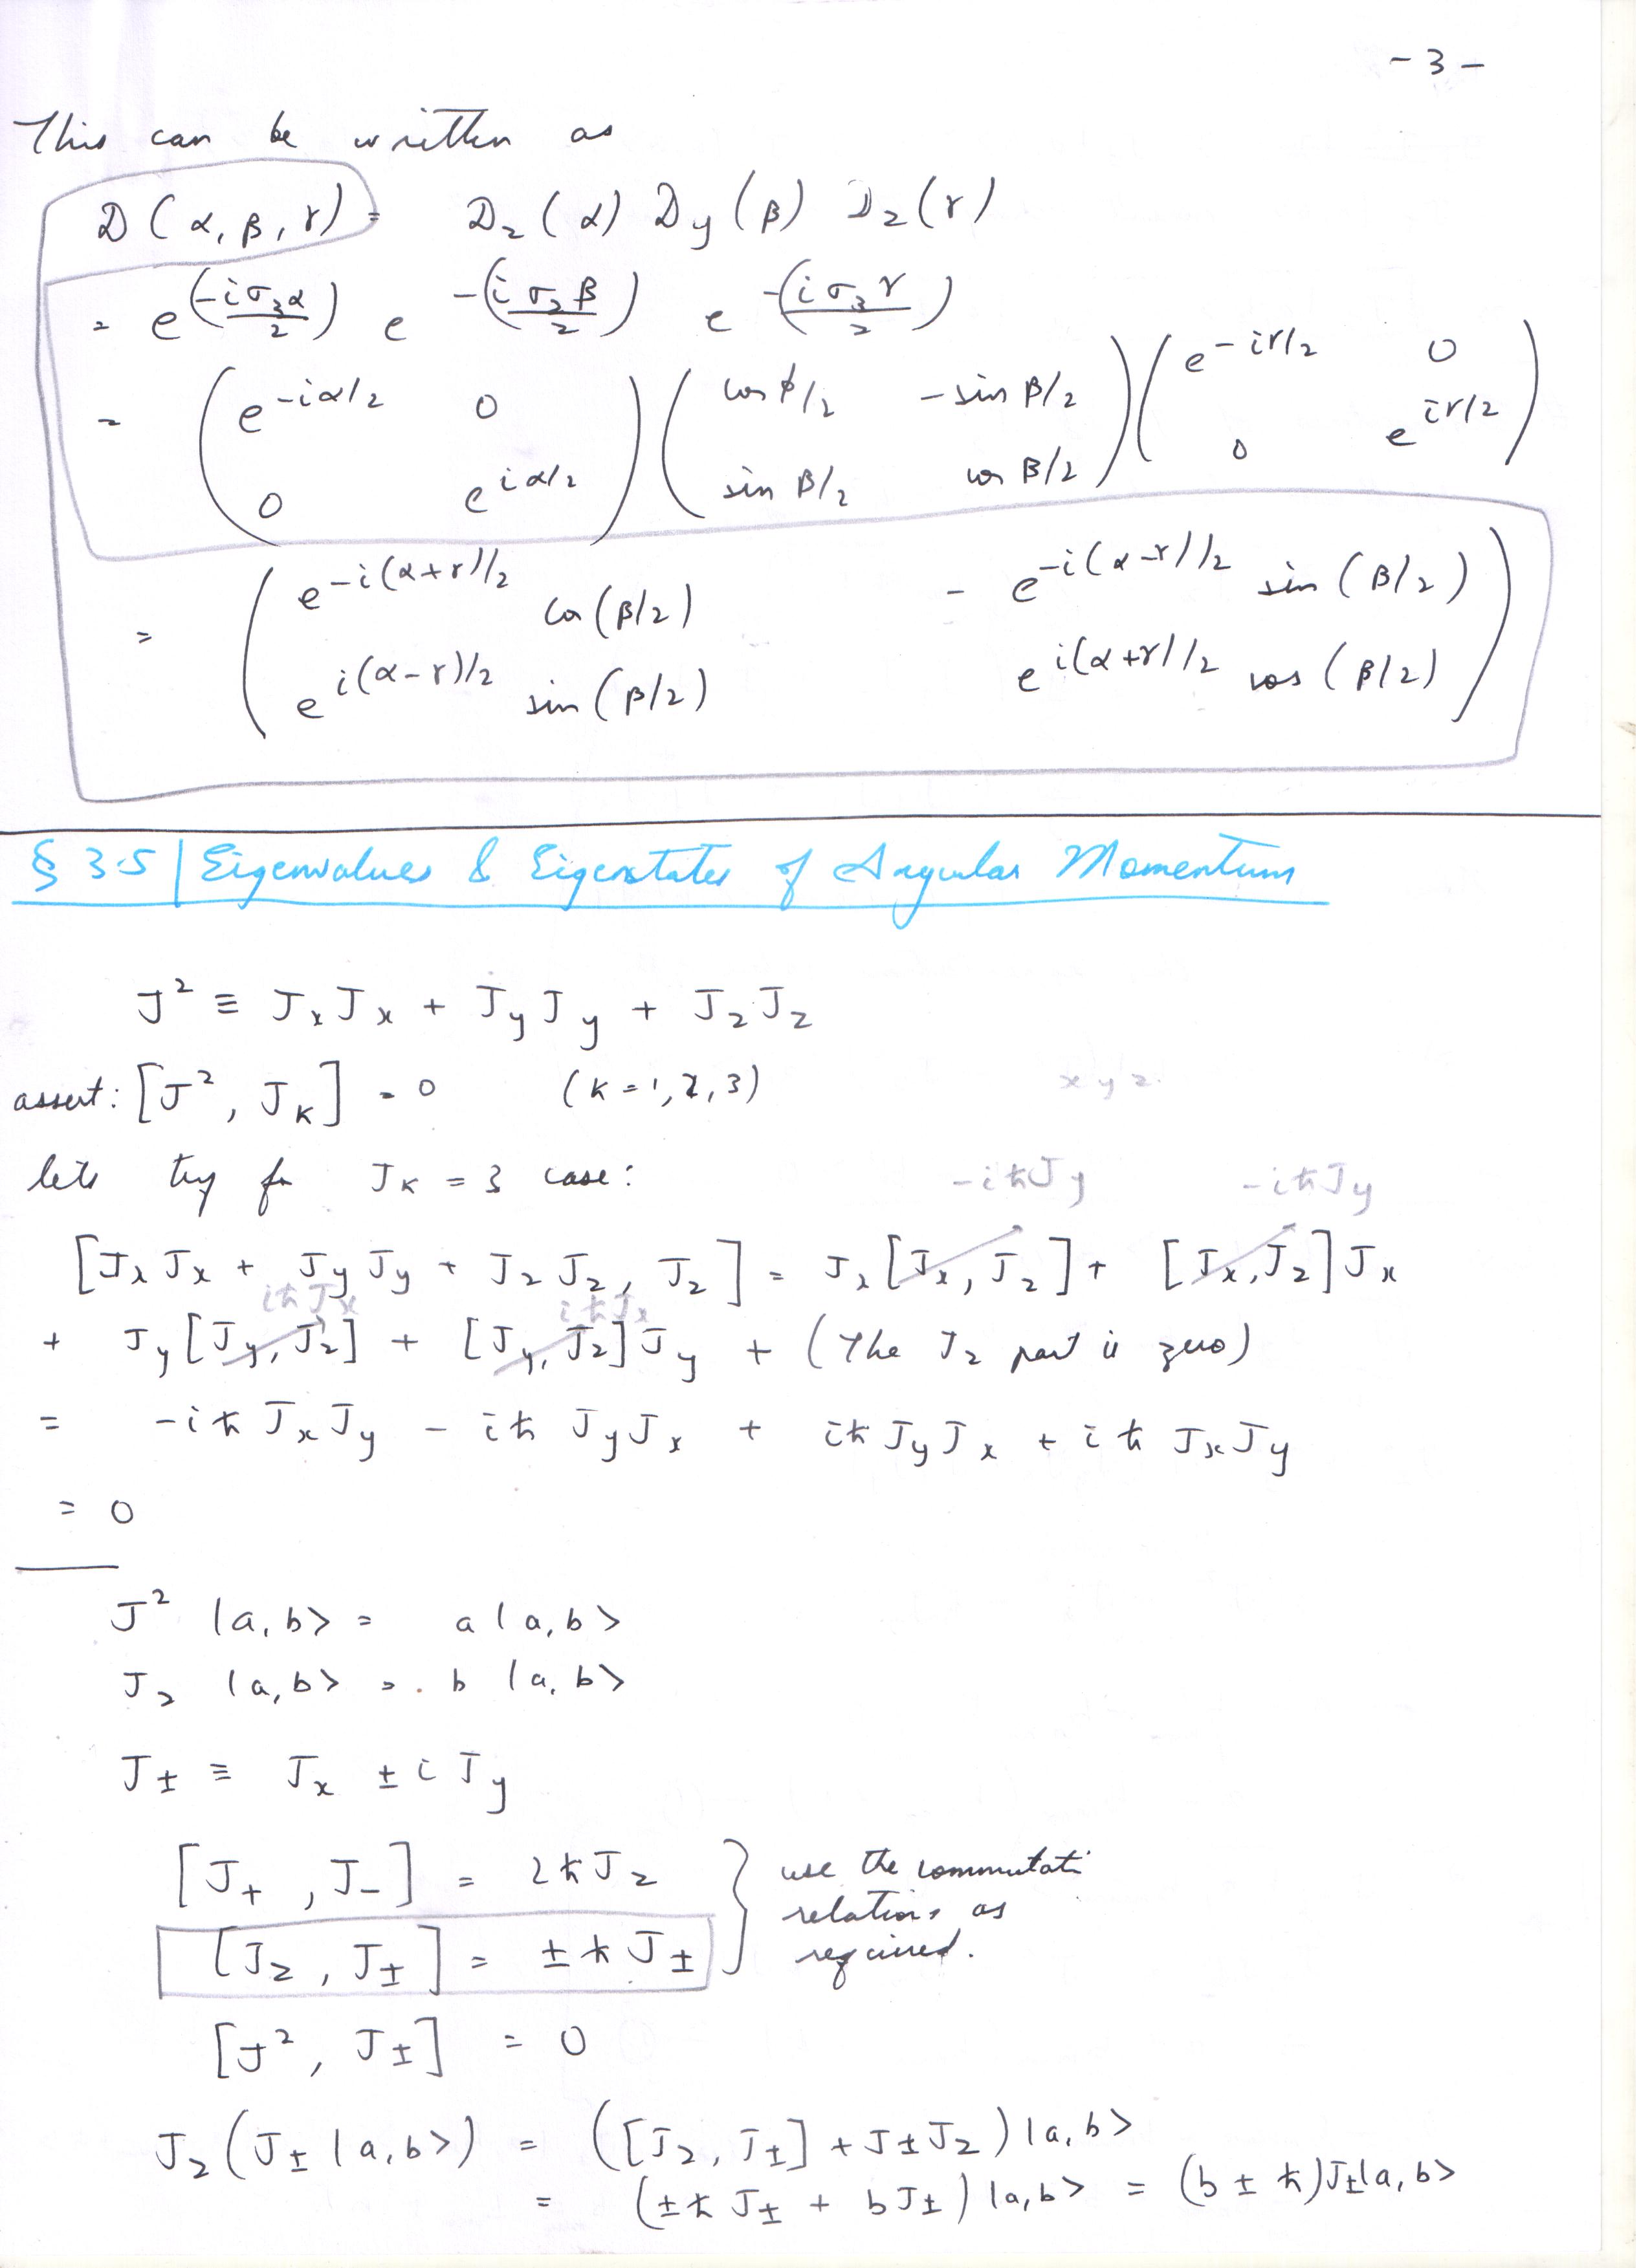 - 3 -
This can be written as
D(α, β, γ) = D_z(α) D_y(β) D_z(γ)
= e^(-iσ_3α/2) e^-(iσ_2β/2) e^-(iσ_3γ/2)
= ( e^-iα/2 0 ; 0 e^iα/2 ) ( cos β/2 -sin β/2 ; sin β/2 cos β/2 ) ( e^-iγ/2 0 ; 0 e^iγ/2 )
= ( e^-i(α+γ)/2 cos(β/2) - e^-i(α-γ)/2 sin(β/2) ;
e^i(α-γ)/2 sin(β/2) e^i(α+γ)/2 cos(β/2) )
§ 3.5 | Eigenvalues & Eigenstates of Angular Momentum
J² ≡ J_x J_x + J_y J_y + J_z J_z
assert: [J², J_K] = 0 (K = 1, 2, 3) x y z.
lets try for J_K = 3 case: -iħJ_y -iħJ_y
[J_x J_x + J_y J_y + J_z J_z, J_z] = J_x [J_x, J_z] + [J_x, J_z] J_x
iħJ_x iħJ_x
+ J_y [J_y, J_z] + [J_y, J_z] J_y + (The J_z part is zero)
= -iħ J_x J_y - iħ J_y J_x + iħ J_y J_x + iħ J_x J_y
= 0
J² |a, b> = a |a, b>
J_z |a, b> = b |a, b>
J_± ≡ J_x ± i J_y
[J_+, J_-] = 2ħJ_z } use the commutati
relations as
[J_z, J_±] = ±ħ J_± required.
[J², J_±] = 0
J_z (J_± |a, b>) = ([J_z, J_±] + J_± J_z) |a, b>
= (±ħ J_± + b J_±) |a, b> = (b ± ħ) J_± |a, b>